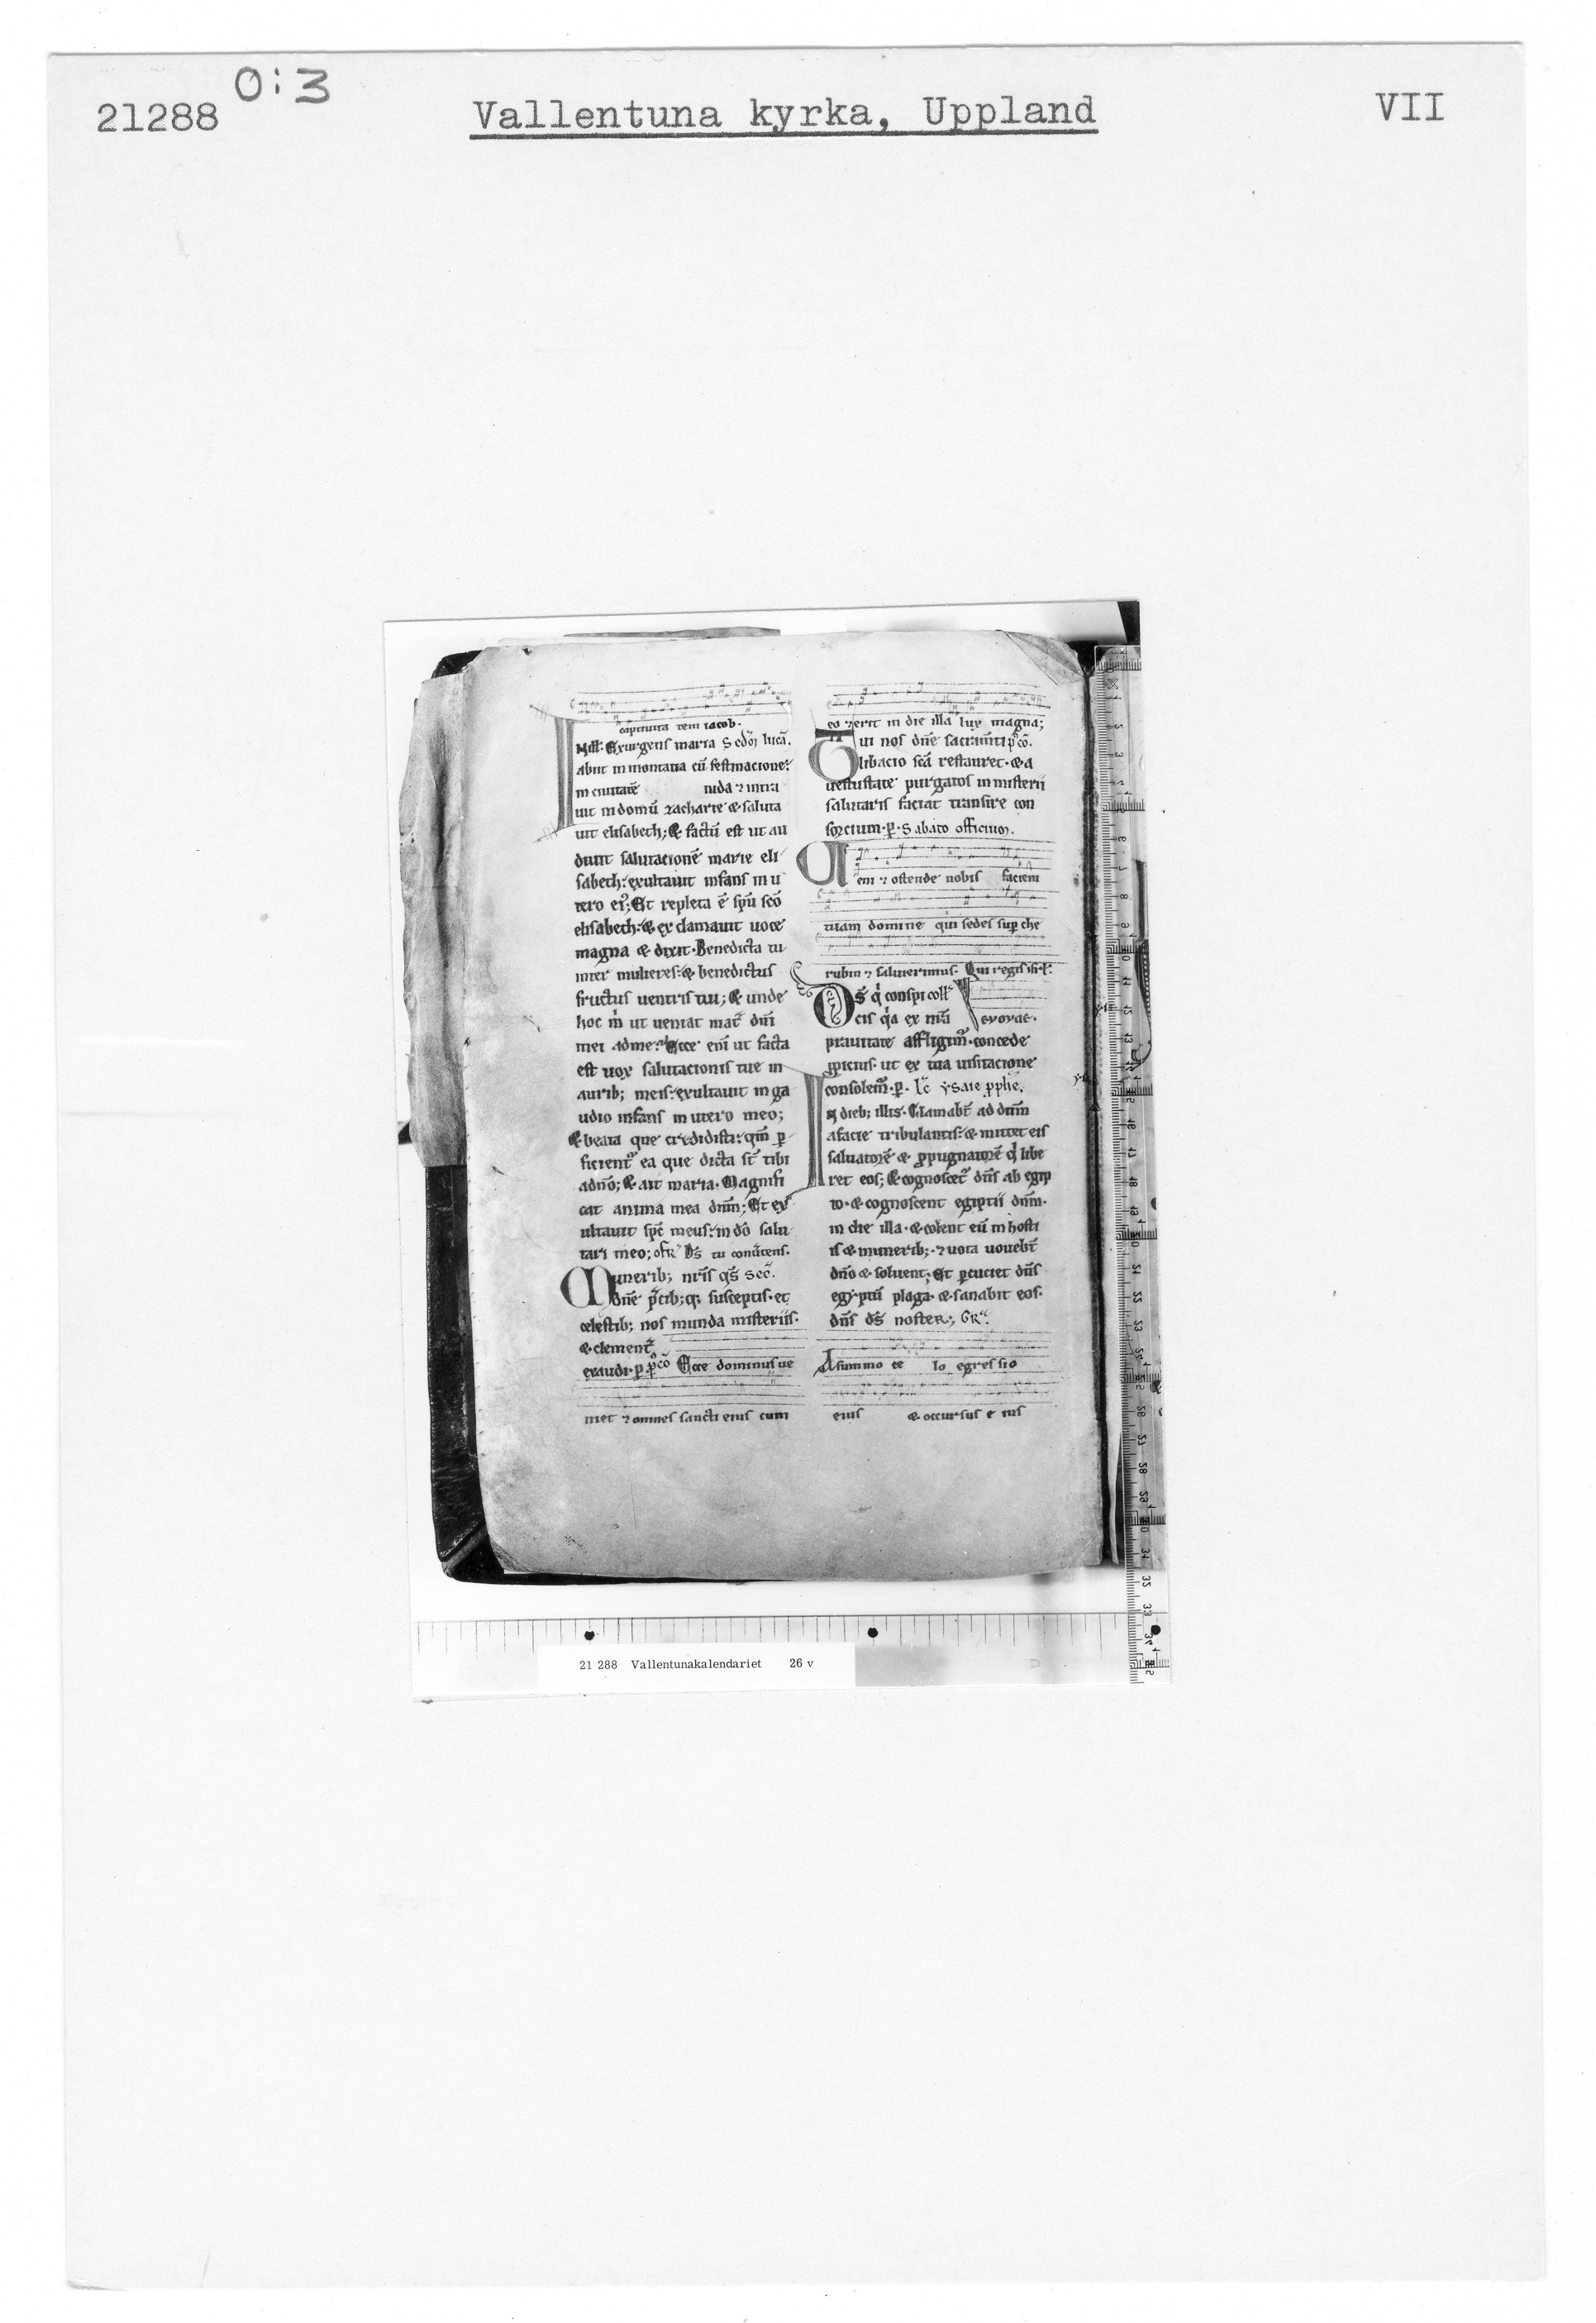 21288
O:3
Vallentuna kyrka, Uppland
VII
captiuita tem iacob.
N ill̄. Exurgens maria Scd̄m lucā.
abiit in montana cū festinacione:
in ciuitatē iuda ⁊ intra
uit in domū zacharie & saluta
uit elisabeth; & factū est ut au
diuit salutacionē marie eli
sabeth: exultauit infans in u
tero ei᷒; Et repleta ē sp̄u sc̄o
elisabeth: & exclamauit uoce
magna & dixit. Benedicta tu
inter mulieres: & benedictus
fructus uentris tui; & unde
hoc m̄ ut ueniat mat̄ dn̄i
mei ad me: Ecce eni̅ ut facta
est uox salutacionis tue in
aurib; meis: exultauit in ga
udio infans in utero meo;
& beata que credidisti: qm̄ p
ficient᷒ ea que dicta st̄ tibi
a dn̄o; & ait maria. Magnifi
cat anima mea dn̄m; Et ex
ultauit sp̄c meus: in dō salu
tari meo; ofr̄ Ds̄ tu conuertens.
Munerib; nr̄is qs̄ Sec̄.
dn̄e p̄cib; q; susceptis. et
celestib; nos munda misteriis.
& clement᷒
exaudi. p. p̄cō Ecce dominus ue
niet ⁊ omnes sancti eius cum
eo ⁊ erit in die illa lux magna;
Tui nos dn̄e sacram̄ti p̄cō.
libacio sc̄a restauret. & a
uetustate purgatos in misterii
salutaris faciat transire con
sorcium. p. Sabato officium.
Ueni ⁊ ostende nobis faciem
tuam domine qui sedes sup che
rubin ⁊ salui erimus. Qui regis isr̄l.
Ds̄ q̄ conspi coll̄
cis q̄a ex nr̄a evovae.
prauitate affligim᷒. concede
ppicius. ut ex tua uisitacione
consolem᷒. p. Lc̄ ysaie pph̄e.
In dieb; illis. Clamabt̄ ad dn̄m
a facie tribulantis: & mittet eis
saluatorē & ppugnatorē q̄ libe
ret eos; & cognoscet᷒ dn̄s ab egip
to. & cognoscent egiptii dn̄m.
in die illa. & colent eū in hosti
is & munerib;. ⁊ uota uouebt̄
dn̄o & soluent; Et pcuciet dn̄s
egyptū plaga. & sanabit eos.
dn̄s ds̄ noster; GR̄.
A summo ce lo egressio
eius & occursus e ius
21 288 Vallentunakalendariet 26 v